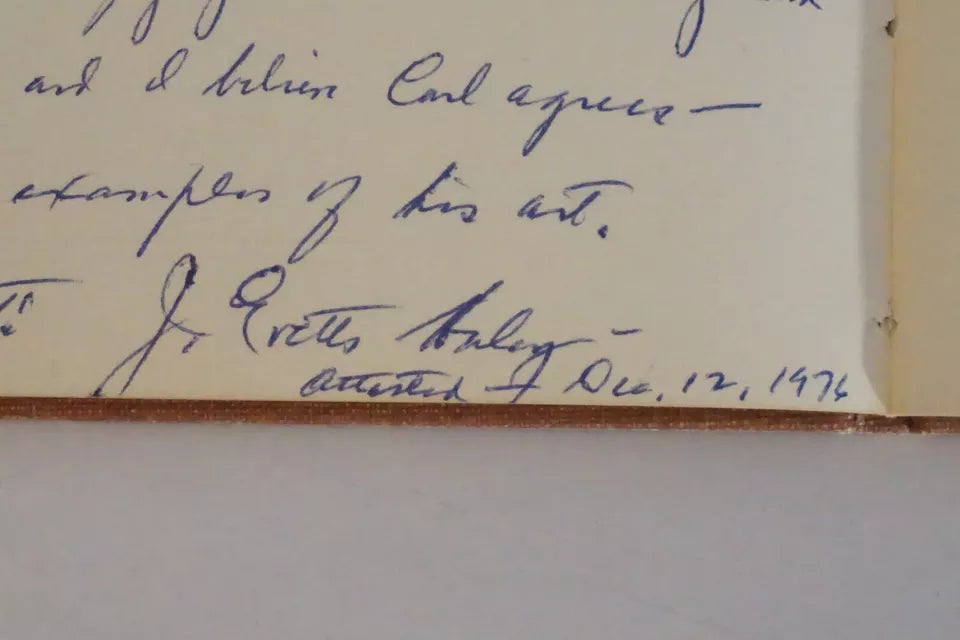 and I believe Carl agrees —
examples of his art.
J. Evetts Haley —
Attested Dec. 12, 1976